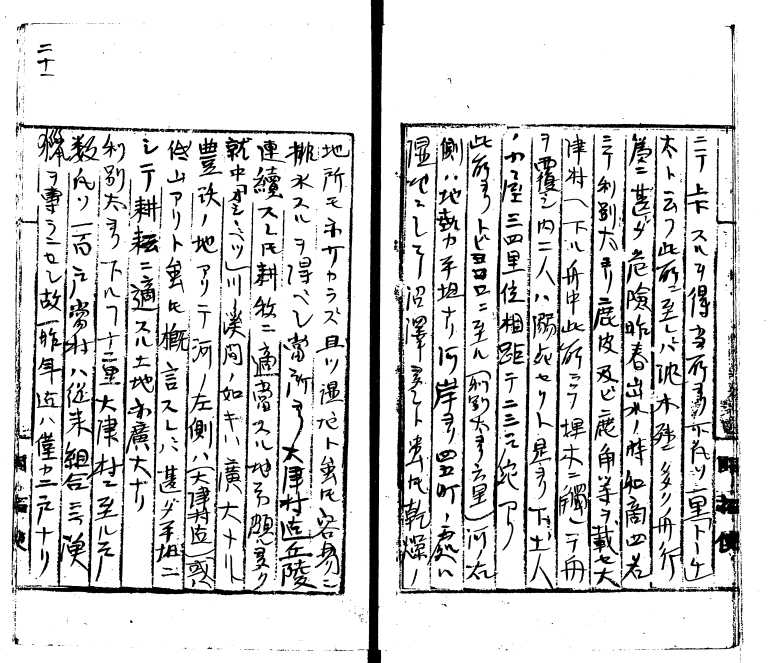 ニテ上下スルヲ得当所ヨリ下凡ソ一里「トシケ
太ト云フ此所ニ至レハ流木殊ニ多ク舟行
為ニ甚ダ危険昨春出水ノ時和商四名
ニテ利別太ヨリ鹿皮及ビ鹿角等ヲ載セ大
津村ヘ下ル舟中此所ニテ埋木ニ触レテ舟
ヲ覆シ内二人ハ溺死セリト是ヨリ下土人
ノ家屋三四里位相距テ二三戸宛アリ
此所ヨリトビヨロニ至ル(利別太ヨリ六里)河ノ右
側ハ地勢力平坦ナリ河岸ヨリ四五町ノ処ハ
湿地ニシテ沼澤多シト雖氏乾燥ノ
二十一
地所モ亦少カラズ且ツ湿地ト雖氏容易ニ
排水スルヲ得ベシ当所ヨリ大津村迄丘陵
連続スレ氏耕牧ニ適当スル地等頗多ク
就中「オシベツ」川ノ渓間ノ如キハ廣大ナル
豊饒ノ地アリテ河ノ左側ハ(大津村迄)或ハ
低山アリト雖氏概言スレハ甚ダ平坦ニ
シテ耕耘ニ適スル土地亦廣大ナリ
利別太ヨリ下ルヿ十二里大津村ニ至ル戸
数凡ソ一百戸当村ハ従来組合ニテ漁
猟ヲ専ラニセシ故昨年迄ハ僅カ二戸ナリ
開拓使
開拓使